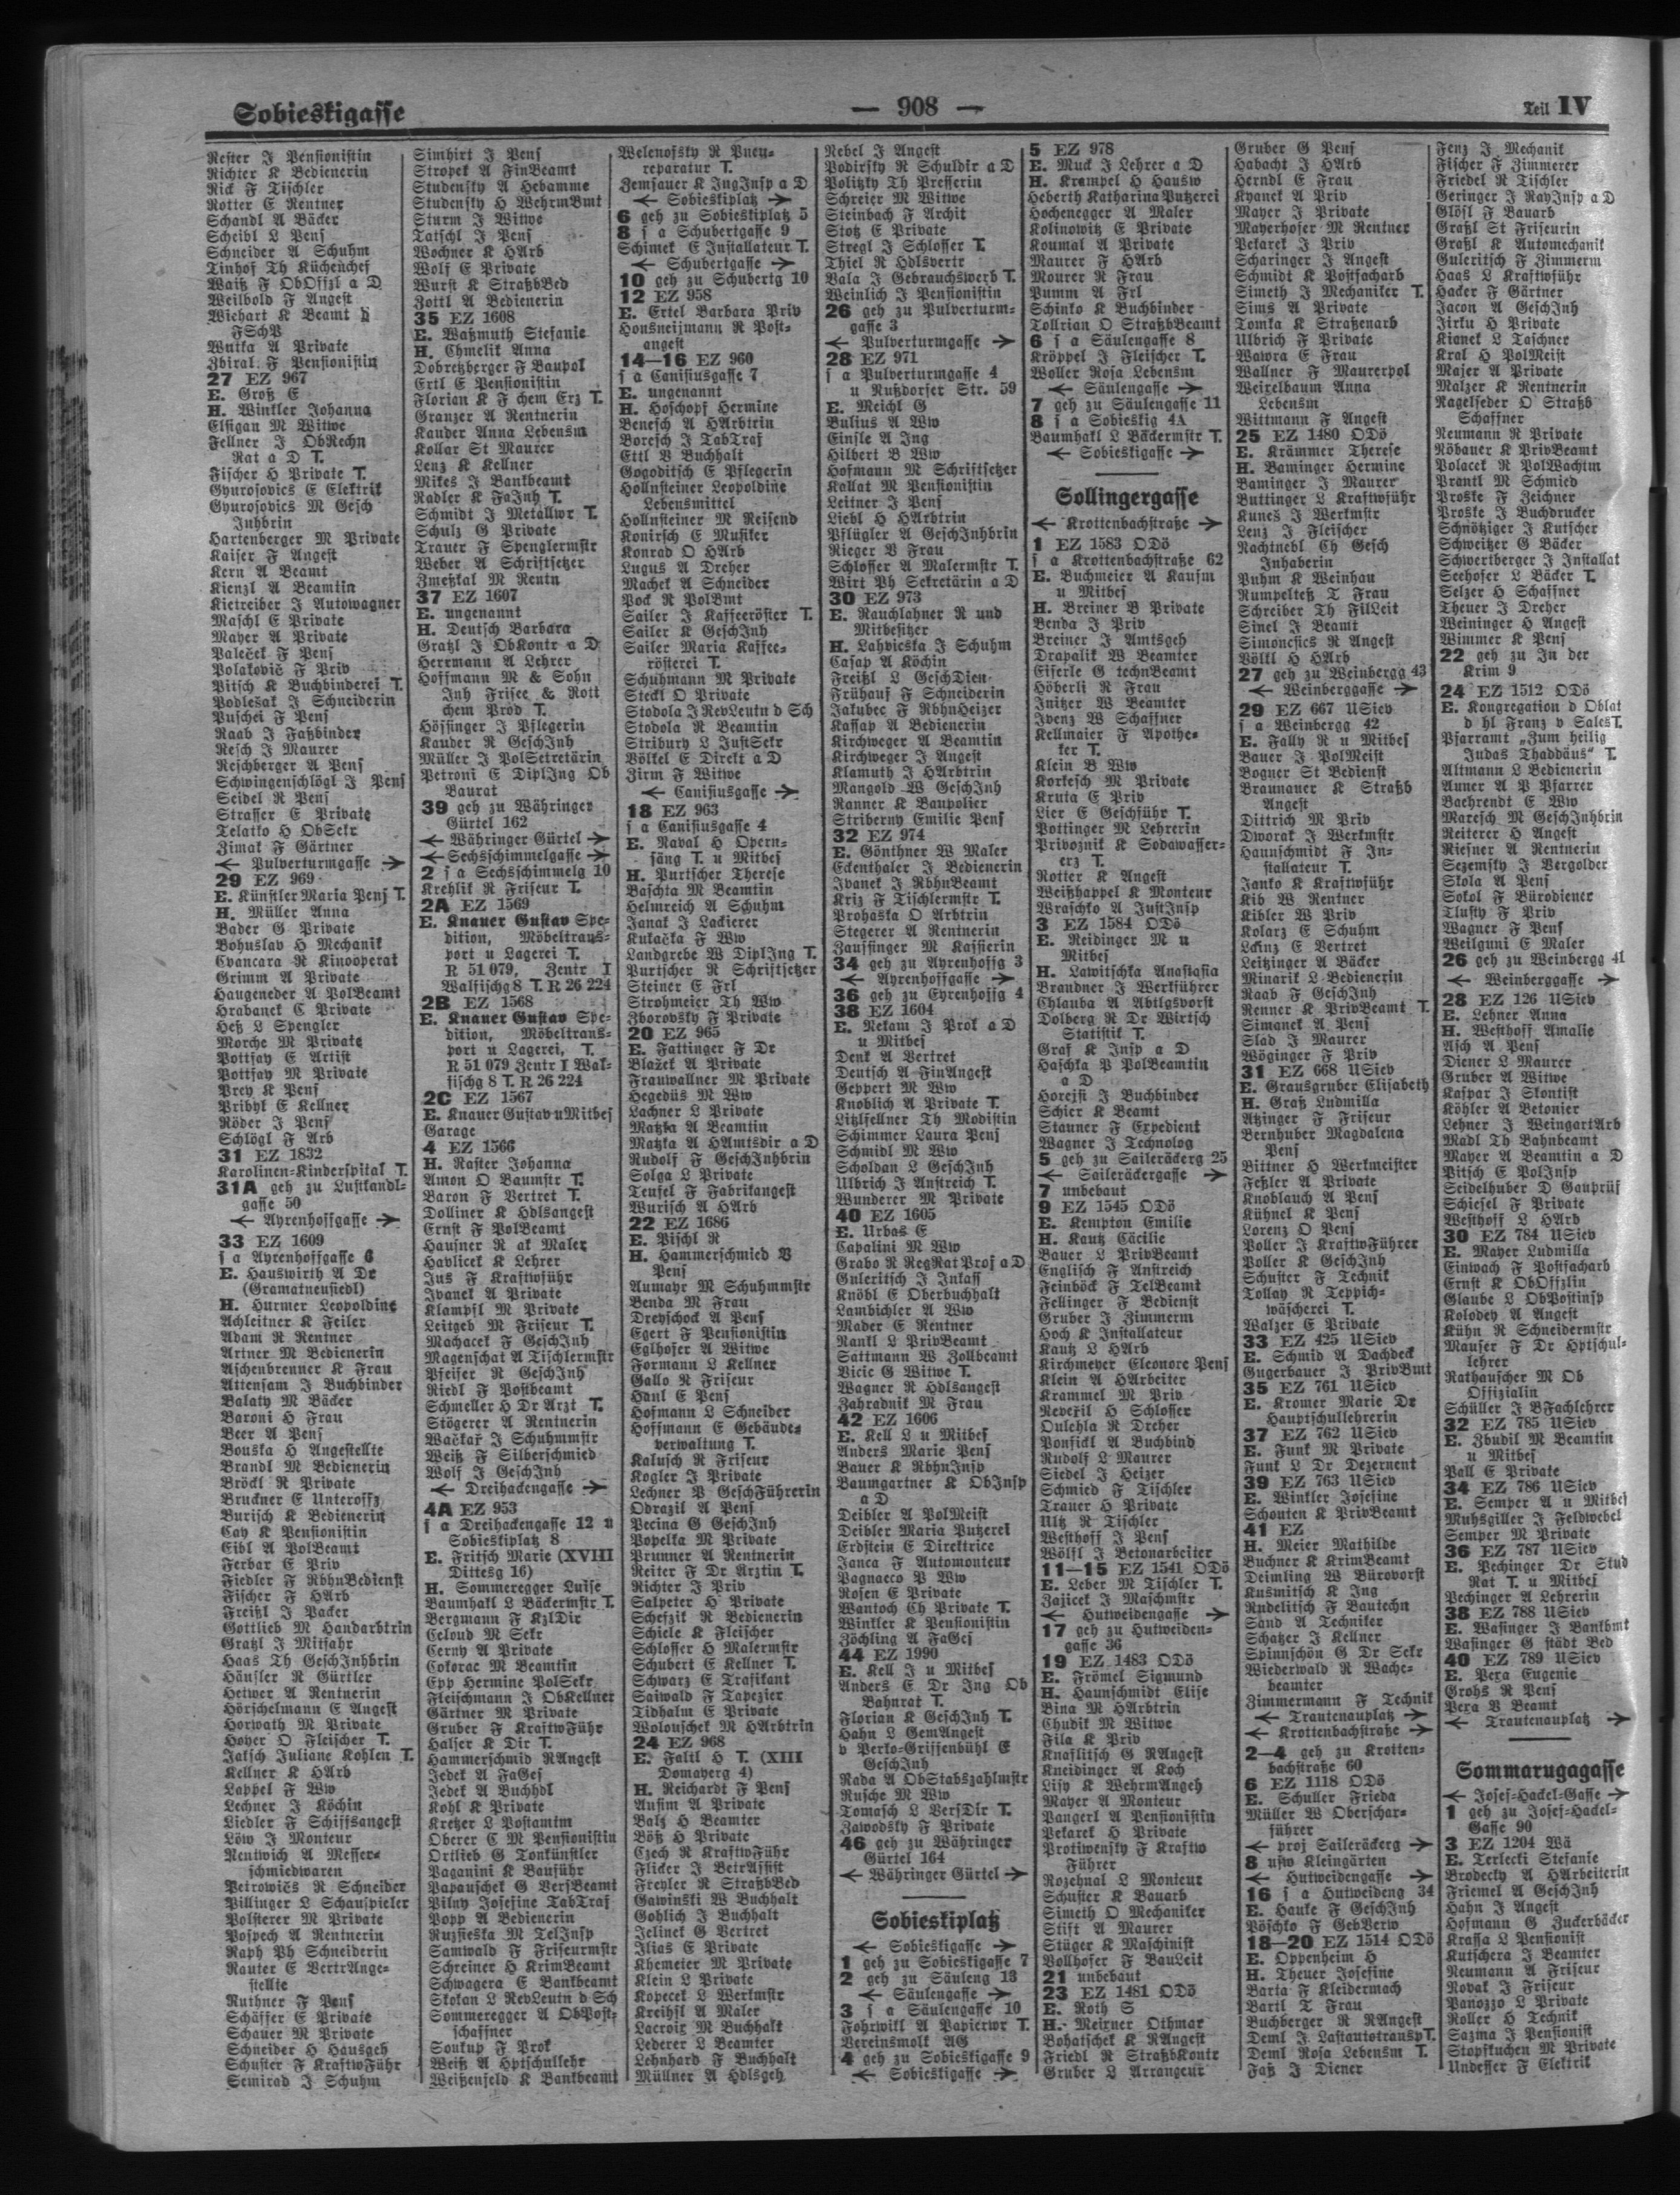 Sobieskigasse
— 908 —
Teil IV
Nester J Pensionistin
Richter K Bedienerin
Rick F Tischler
Rotter E Rentner
Schandl A Bäcker
Scheibl L Pens
Schneider A Schuhm
Tinhof Th Küchenchef
Waiß F ObOffzl a D
Weilbold F Angest
Wiehart K Beamt d
FSchP
Wutka A Private
Zbiral F Pensionistin
27 EZ 967
E. Groß E
H. Winkler Johanna
Elsigan M Witwe
Fellner J ObRechn
Rat a D T.
Fischer H Private T.
Gyurosovics E Elektrik
Gyurosovics M Gesch
Inhbrin
Hartenberger M Private
Kaiser F Angest
Kern A Beamt
Kienzl A Beamtin
Kietreiber J Autowagner
Maschl E Private
Mayer A Private
Paleček F Pens
Polakovič F Priv
Pitsch K Buchbinderei T.
Podlešak J Schneiderin
Puschei F Pens
Raab J Faßbinder
Resch J Maurer
Reschberger A Pens
Schwingenschlögl J Pens
Seidel R Pens
Strasser E Private
Telatko H ObSekr
Zimak F Gärtner
← Pulverturmgasse →
29 EZ 969
E. Künstler Maria Pens T.
H. Müller Anna
Bader G Private
Bohuslav H Mechanik
Cvancara R Kinooperat
Grimm A Private
Haugeneder A PolBeamt
Hrabanek C Private
Heß L Spengler
Morche M Private
Pottsay E Artist
Pottsay M Private
Prey K Pens
Pribyk E Kellner
Röder J Pens
Schlögl F Arb
31 EZ 1832
Karolinen-Kinderspital T.
31A geh zu Lustkandl-
gasse 50
← Ayrenhoffgasse →
33 EZ 1609
s a Ayrenhoffgasse 6
E. Hauswirth A Dr
(Gramatneusiedl)
H. Hurmer Leopoldine
Achleitner K Feiler
Adam R Rentner
Artner M Bedienerin
Aschenbrenner K Frau
Attensam J Buchbinder
Balaty M Bäcker
Baroni H Frau
Beer A Pens
Bouska H Angestellte
Brandl M Bedienerin
Bröckl R Private
Bruckner E Unteroffz
Burisch K Bedienerin
Cay K Pensionistin
Eibl A PolBeamt
Ferbar E Priv
Fiedler F RbhnBedienst
Fischer F HArb
Freißl J Packer
Gottlieb M Handarbtrin
Gratzl J Mitfahr
Haas Th GeschInhbrin
Häusler R Gürtler
Hetwer A Rentnerin
Hörschelmann E Angest
Horwath M Private
Hoyer O Fleischer T.
Jaksch Juliane Kohlen T.
Kellner K HArb
Lappel F Ww
Lechner J Köchin
Liedler F Schiffsangest
Löw J Monteur
Nentwich A Messer-
schmiedwaren
Petrowics R Schneider
Pillinger L Schauspieler
Polsterer M Private
Pospech A Rentnerin
Raph Ph Schneiderin
Rauter E VertrAnge-
stellte
Ruthner F Pens
Schäffer E Private
Schauer M Private
Schneider H Hausgeh
Schuster F KraftwFühr
Semirad J Schuhm
Simhirt J Pens
Stropek A FinBeamt
Studensky A Hebamme
Studensky H WehrmBmt
Sturm J Witwe
Tatschl J Pens
Wochner K HArb
Wolf E Private
Wurst K StraßbBed
Zottl A Bedienerin
35 EZ 1608
E. Waßmuth Stefanie
H. Chmelik Anna
Dobretzberger F Baupol
Ertl E Pensionistin
Florian K F chem Erz T.
Granzer A Rentnerin
Kauder Anna Lebensm
Kollar St Maurer
Lenz K Kellner
Mikes J Bankbeamt
Radler K FaInh T.
Schmidt J Metallwr T.
Schulz G Private
Trauer F Spenglermstr
Weber A Schriftsetzer
Zmeßkal M Rentn
37 EZ 1607
E. ungenannt
H. Deutsch Barbara
Gratzl J ObKontr a D
Herrmann A Lehrer
Hoffmann M & Sohn
Inh Frisee & Rott
chem Prod T.
Höfinger J Pflegerin
Kauder R GeschInh
Müller J PolSekretärin
Petroni E DiplIng Ob
Baurat
39 geh zu Währinger
Gürtel 162
← Währinger Gürtel →
← Sechsschimmelgasse →
2 s a Sechsschimmelg 10
Krehlik R Friseur T.
2A EZ 1569
E. Knauer Gustav Spe-
dition, Möbeltrans-
port u Lagerei T.
R 51 079, Zentr I
Walfischg 8 T. R 26 224
2B EZ 1568
E. Knauer Gustav Spe-
dition, Möbeltrans-
port u Lagerei, T.
R 51 079 Zentr I Wal-
fischg 8 T. R 26 224
2C EZ 1567
E. Knauer Gustav u Mitbes
Garage
4 EZ 1566
H. Raster Johanna
Amon O Baumstr T.
Baron F Vertret T.
Dolliner K Hdlsangest
Ernst F PolBeamt
Hausner R ak Maler
Havlicek K Lehrer
Jus F Kraftwführ
Ivanek A Private
Klampfl M Private
Leitgeb M Friseur T.
Machacek F GeschInh
Magenschat A Tischlermstr
Pfeifer R GeschInh
Riedl F Postbeamt
Schmeller H Dr Arzt T.
Stögerer A Rentnerin
Wačkař J Schuhmmstr
Weiß F Silberschmied
Wolf J GeschInh
← Dreihackengasse →
4A EZ 953
s a Dreihackengasse 12 u
Sobieskiplatz 8
E. Fritsch Marie (XVIII
Dittesg 16)
H. Sommeregger Luise
Baumhakl L Bäckermstr T.
Bergmann F KzlDir
Celoud M Sekr
Cerny A Private
Cokorac M Beamtin
Epp Hermine PolSekr
Fleischmann J ObKellner
Gärtner M Private
Gruber F KraftwFühr
Halser K Dir T.
Hammerschmid RAngest
Jedek A FaGes
Jedek A Buchhdl
Kohl K Private
Kretzer L Postamtm
Oberer C M Pensionistin
Ortlieb G Tonkünstler
Paganini K Bauführ
Papauschek G VersBeamt
Pilny Josefine TabTraf
Popp A Bedienerin
Ruzsieska M TelInsp
Samwald F Friseurmstr
Schreiner H KrimBeamt
Schwagera E Bankbeamt
Skokan L RevLeutn d Sch
Sommeregger A ObPost-
schaffner
Soukup F Prok
Weiß A Hptschullehr
Weißenfeld K Bankbeamt
Welenofsky R Pneu-
reparatur T.
Zemsauer K IngInsp a D
← Sobieskiplatz →
6 geh zu Sobieskiplatz 5
8 s a Schubertgasse 9
Schimek E Installateur T.
← Schubertgasse →
10 geh zu Schubertg 10
12 EZ 958
E. Ertel Barbara Priv
Housneijmann R Post-
angest
14—16 EZ 960
s a Canisiusgasse 7
E. ungenannt
H. Hoschopf Hermine
Benesch A HArbtrin
Boresch J TabTraf
Ettl V Buchhalt
Gogoditsch E Pflegerin
Hollnsteiner Leopoldine
Lebensmittel
Hollnsteiner M Reisend
Konirsch E Musiker
Konrad O HArb
Lugus A Dreher
Machek A Schneider
Pock R PolBmt
Sailer J Kaffeeröster T.
Sailer K GeschInh
Sailer Maria Kaffee-
rösterei T.
Schuhmann M Private
Steckl O Private
Stodola J RevLeutn d Sch
Stodola R Beamtin
Stribury L JustSekr
Völkel E Direkt a D
Zirm F Witwe
← Canisiusgasse →
18 EZ 963
s a Canisiusgasse 4
E. Naval H Opern-
säng T. u Mitbes
H. Purtscher Therese
Baschta M Beamtin
Helmreich A Schuhm
Janak J Lackierer
Kukačka F Ww
Landgrebe W DiplIng T.
Purtscher R Schriftsetzer
Steiner E Frl
Strohmeier Th Ww
Zborovsky F Private
20 EZ 965
E. Fattinger F Dr
Blažek A Private
Frauwallner M Private
Hegedüs M Ww
Lachner L Private
Matzka A Beamtin
Matzka A HAmtsdir a D
Rudolf F GeschInhbrin
Solga L Private
Teufel F Fabrikangest
Wurisch A HArb
22 EZ 1686
E. Pischl R
H. Hammerschmied V
Pens
Aumayr M Schuhmmstr
Benda M Frau
Dreyschock A Pens
Egert F Pensionistin
Eglhofer A Witwe
Formann L Kellner
Gallo R Friseur
Haul E Pens
Hofmann L Schneider
Hoffmann E Gebäude-
verwaltung T.
Kalusch R Friseur
Kogler J Private
Lechner P GeschFührerin
Odrazil A Pens
Pecina G GeschInh
Popelka M Private
Prunner A Rentnerin
Reiter F Dr Arztin T.
Richter J Priv
Salpeter H Private
Schefzik R Bedienerin
Schiele K Fleischer
Schlosser H Malermstr
Schubert E Kellner T.
Schwarz E Trafikant
Saiwald F Tapezier
Tidhalm E Private
Wolouschek M HArbtrin
24 EZ 968
E. Faltl H T. (XIII
Domayerg 4)
H. Reichardt F Pens
Aufim A Private
Balz H Beamter
Böß H Private
Czech R KraftwFühr
Flicker J BetrAssist
Freyler R StraßbBed
Gawinski W Buchhalt
Gohlich J Buchhalt
Jelinek G Vertret
Ilias E Private
Khemeter M Private
Klein L Private
Kopecek L Werkmstr
Kreihsl A Maler
Lacroix M Buchhalt
Lederer L Beamter
Lehnhard F Buchhalt
Müllner A Hdlsgeh
Nebel J Angest
Podirsky R Schuldir a D
Politzky Th Presserin
Schreier M Witwe
Steinbach F Archit
Stotz E Private
Stregl J Schlosser T.
Thiel R Hdlsvertr
Vala J Gebrauchswerb T.
Weinlich J Pensionistin
26 geh zu Pulverturm-
gasse 3
← Pulverturmgasse →
28 EZ 971
s a Pulverturmgasse 4
u Nußdorfer Str. 59
E. Meichl G
Bulius A Ww
Einsle A Ing
Hilbert B Ww
Hofmann M Schriftsetzer
Kollat M Pensionistin
Leitner J Pens
Liebl H HArbtrin
Pflügler A GeschInhbrin
Rieger V Frau
Schlosser A Malermstr T.
Wirt Ph Sekretärin a D
30 EZ 973
E. Rauchlahner R und
Mitbesitzer
H. Lahvicska J Schuhm
Casap A Köchin
Freißl L GeschDien
Frühauf F Schneiderin
Jakubec F RbhnHeizer
Kassap A Bedienerin
Kirchweger A Beamtin
Kirchweger J Angest
Klamuth J HArbtrin
Mangold W GeschInh
Ranner K Baupolier
Striberny Emilie Pens
32 EZ 974
E. Gönthner W Maler
Eckenthaler J Bedienerin
Ivanek J RbhnBeamt
Kriz F Tischlermstr T.
Prohaska O Arbtrin
Stegerer A Rentnerin
Zauffinger M Kassierin
34 geh zu Ayrenhoffg 3
← Ayrenhoffgasse →
36 geh zu Eyrenhoffg 4
38 EZ 1604
E. Rekam J Prok a D
u Mitbes
Denk A Vertret
Deutsch A FinAngest
Geppert M Ww
Knoblich A Private T.
Litzlfellner Th Modistin
Schimmer Laura Pens
Schmidl M Ww
Scholdan L GeschInh
Ulbrich J Anstreich T.
Wunderer M Private
40 EZ 1605
E. Urbas E
Capalini M Ww
Grabo R RegRat Prof a D
Guleritsch J Inkass
Knöbl E Oberbuchhalt
Lambichler A Ww
Mader E Rentner
Rankl L PrivBeamt
Sattmann W Zollbeamt
Vicic G Witwe T.
Wagner R Hdlsangest
Zahradnik M Frau
42 EZ 1606
E. Kell L u Mitbes
Anders Marie Pens
Bauer K RbhnInsp
Baumgartner K ObInsp
a D
Deibler A PolMeist
Deibler Maria Putzerei
Erdstein E Direktrice
Janca F Automonteur
Pagnacco P Ww
Rosen E Private
Wantoch Th Private T.
Winkler K Pensionistin
Zöchling A FaGes
44 EZ 1990
E. Kell J u Mitbes
Anders E Dr Ing Ob
Bahnrat T.
Florian K GeschInh T.
Hahn L GemAngest
v Perko-Griffenbühl E
GeschInh
Rada A ObStabszahlmstr
Rusche M Ww
Tomasch L VersDir T.
Zawodsky F Private
46 geh zu Währinger
Gürtel 164
← Währinger Gürtel →
Sobieskiplatz
← Sobieskigasse →
1 geh zu Sobieskigasse 7
2 geh zu Säuleng 13
← Säulengasse →
3 s a Säulengasse 10
Fohrwikl A Papierwr T.
Vereinsmolk AG
4 geh zu Sobieskigasse 9
← Sobieskigasse →
5 EZ 978
E. Muck J Lehrer a D
H. Krampel H Hausw
Heberth Katharina Putzerei
Hochenegger A Maler
Kolinowitz E Private
Koumal A Private
Maurer F HArb
Mourer R Frau
Pumm A Frl
Schinko K Buchbinder
Tollrian O StraßbBeamt
6 s a Säulengasse 8
Kröppel J Fleischer T.
Woller Rosa Lebensm
← Säulengasse →
7 geh zu Säulengasse 11
8 s a Sobieskig 4A
Baumhakl L Bäckermstr T.
← Sobieskigasse →
Sollingergasse
← Krottenbachstraße →
1 EZ 1583 ODö
s a Krottenbachstraße 62
E. Buchmeier A Kaufm
u Mitbes
H. Breiner B Private
Benda J Priv
Breiner J Amtsgeh
Drapalik W Beamter
Eiserle G technBeamt
Höberli R Frau
Jnitzer W Beamter
Ivenz W Schaffner
Kellmaier F Apothe-
ker T.
Klein B Ww
Korkesch M Private
Kruta E Priv
Lier E Geschführ T.
Pottinger M Lehrerin
Privoznik K Sodawasser-
erz T.
Rotter K Angest
Weißhappel K Monteur
Wraschko A JustInsp
3 EZ 1584 ODö
E. Reidinger M u
Mitbes
H. Lawitschka Anastasia
Brandner J Werkführer
Chlauba A Abtlgsvorst
Dolberg R Dr Wirtsch
Statistik T.
Graf K Insp a D
Haschka P PolBeamtin
a D
Horejsi J Buchbinder
Schier K Beamt
Stauner F Expedient
Wagner J Technolog
5 geh zu Saileräckerg 25
← Saileräckergasse →
7 unbebaut
9 EZ 1545 ODö
E. Kempton Emilie
H. Kautz Cäcilie
Bauer L PrivBeamt
Englisch F Anstreich
Feinböck F TelBeamt
Fellinger F Bedienst
Gruber J Zimmerm
Hoch K Installateur
Kautz L HArb
Kirchmeyer Eleonore Pens
Klein A HArbeiter
Krammel M Priv
Reveřil H Schlosser
Oulehla R Dreher
Ponfickl A Buchbind
Rudolf L Maurer
Siedel J Heizer
Schmied F Tischler
Trauer H Private
Ulz R Tischler
Westhoff J Pens
Wölfl J Betonarbeiter
11—15 EZ 1541 ODö
E. Leber M Tischler T.
Zajicek J Maschmstr
← Hutweidengasse →
17 geh zu Hutweiden-
gasse 36
19 EZ 1483 ODö
E. Frömel Sigmund
H. Haunschmidt Elise
Bina M HArbtrin
Chudik M Witwe
Fila K Priv
Knaflitsch G RAngest
Kneidinger A Koch
Lisy K WehrmAngeh
Mayer A Monteur
Pangerl A Pensionistin
Pekarek H Private
Protiwensky F Kraftw
Führer
Rozehnal L Monteur
Schuster K Bauarb
Simeth O Mechaniker
Stift A Maurer
Stüger K Maschinist
Vollhofer F BauLeit
21 unbebaut
23 EZ 1481 ODö
E. Roth S
H. Meixner Othmar
Bohatschek K RAngest
Friedl R StraßbKontr
Gruber L Arrangeur
Gruber G Pens
Habacht J HArb
Herndl E Frau
Kyanek A Priv
Mayer J Private
Mayerhofer M Rentner
Pekarek J Priv
Scharinger J Angest
Schmidt K Postfacharb
Simeth J Mechaniker T.
Sims A Private
Tomka K Straßenarb
Ulbrich F Private
Wawra E Frau
Wallner F Maurerpol
Weixelbaum Anna
Lebensm
Wittmann F Angest
25 EZ 1480 ODö
E. Krämmer Therese
H. Baminger Hermine
Baminger J Maurer
Buttinger L Kraftwführ
Kunes J Werkmstr
Lenz J Fleischer
Nachtnebl Ch Gesch
Inhaberin
Puhm K Weinhau
Rumpelteß T Frau
Schreiber Th FilLeit
Sinel J Beamt
Simonesics R Angest
Völkl H HArb
27 geh zu Weinbergg 43
← Weinberggasse →
29 EZ 667 USiev
s a Weinbergg 42
E. Fally R u Mitbes
Bauer J PolMeist
Bogner St Bedienst
Braunauer K Straßb
Angest
Dittrich M Priv
Dworak J Werkmstr
Haunschmidt F In-
stallateur T.
Janko K Kraftwführ
Kib W Rentner
Kibler W Priv
Kolarz E Schuhm
Leinz E Vertret
Leitzinger A Bäcker
Minarik L Bedienerin
Raab F GeschInh
Renner K PrivBeamt T.
Simanek A Pens
Slad J Maurer
Wöginger F Priv
31 EZ 668 USiev
E. Grausgruber Elisabeth
H. Graß Ludmilla
Atzinger F Friseur
Bernhuber Magdalena
Pens
Bittner H Werkmeister
Feßler A Private
Knoblauch A Pens
Kühnel K Pens
Lorenz O Pens
Poller J KraftwFührer
Poller K GeschInh
Schuster F Technik
Tollay R Teppich-
wäscherei T.
Walzer E Private
33 EZ 425 USiev
E. Schmid A Dachdeck
Gugerbauer J PrivBmt
35 EZ 761 USiev
E. Kromer Marie Dr
Hauptschullehrerin
37 EZ 762 USiev
E. Funk M Private
Funk L Dr Dezernent
39 EZ 763 USiev
E. Winkler Josefine
Schouten K PrivBeamt
41 EZ
H. Meier Mathilde
Buchner K KrimBeamt
Deimling W Bürovorst
Kusmitsch K Ing
Rudelitsch F Bautechn
Sand A Techniker
Schatzer J Kellner
Spinnschön G Dr Sekr
Wiederwald R Wache-
beamter
Zimmermann F Technik
← Trautenauplatz →
← Krottenbachstraße →
2—4 geh zu Krotten-
bachstraße 60
6 EZ 1118 ODö
E. Schuller Frieda
Müller W Oberschar-
führer
← proj Saileräckerg →
8 usw Kleingärten
← Hutweidengasse →
16 s a Hutweideng 34
E. Hauke F GeschInh
Pöschko F GebVerw
18—20 EZ 1514 ODö
E. Oppenheim H
H. Theuer Josefine
Barta F Kleidermach
Bartl T Frau
Buchberger R RAngest
Deml J Lastautotransp T.
Deml Rosa Lebensm T.
Faß J Diener
Fenz J Mechanik
Fischer F Zimmerer
Friedel R Tischler
Geringer J RayInsp a D
Glösl F Bauarb
Graßl St Friseurin
Graßl K Automechanik
Guleritsch F Zimmerm
Haas L Kraftwführ
Hacker F Gärtner
Jacon A GeschInh
Jirku H Private
Kianek L Taschner
Kral H PolMeist
Majer A Private
Malzer K Rentnerin
Nagelseder O Straßb
Schaffner
Neumann R Private
Röbauer K PrivBeamt
Polacek R PolWachtm
Prantl M Schmied
Proske F Zeichner
Proske J Buchdrucker
Schnötziger J Kutscher
Schweitzer G Bäcker
Schwertberger J Installat
Seehofer L Bäcker T.
Selzer H Schaffner
Theuer J Dreher
Weininger H Angest
Wimmer K Pens
22 geh zu In der
Krim 9
24 EZ 1512 ODö
E. Kongregation d Oblat
d hl Franz v Sales T.
Pfarramt „Zum heilig
Judas Thaddäus“ T.
Altmann L Bedienerin
Auner A P Pfarrer
Baehrendt E Ww
Maresch M GeschInhbrin
Reiterer H Angest
Riesner A Rentnerin
Sezemsky J Vergolder
Skola A Pens
Sokol F Bürodiener
Tlusty F Priv
Wagner F Pens
Weilguni E Maler
26 geh zu Weinbergg 41
← Weinberggasse →
28 EZ 126 USiev
E. Lehner Anna
H. Westhoff Amalie
Asch A Pens
Diener L Maurer
Gruber A Witwe
Kaspar J Skontist
Köhler A Betonier
Lehner J WeingartArb
Madl Th Bahnbeamt
Mayer A Beamtin a D
Pitsch E PolInsp
Seidelhuber D Gauprüf
Schiefel F Private
Westhoff L HArb
30 EZ 784 USiev
E. Mayer Ludmilla
Einwach F Postfacharb
Ernst K ObOffzlin
Glaube L ObPostinsp
Kolodey A Angest
Kühn R Schneidermstr
Mauser F Dr Hptschul-
lehrer
Rathauscher M Ob
Offizialin
Schüller J BFachlehrer
32 EZ 785 USiev
E. Zbudil M Beamtin
u Mitbes
Pall E Private
34 EZ 786 USiev
E. Semper A u Mitbes
Muhsgiller J Feldwebel
Semper M Private
36 EZ 787 USiev
E. Pechinger Dr Stud
Rat T. u Mitbes
Pechinger A Lehrerin
38 EZ 788 USiev
E. Wasinger J Bankbmt
Wasinger G städt Bed
40 EZ 789 USiev
E. Pexa Eugenie
Grohs R Pens
Pexa V Beamt
← Trautenauplatz →
Sommarugagasse
← Josef-Hackel-Gasse →
1 geh zu Josef-Hackel-
Gasse 90
3 EZ 1204 Wä
E. Terlecki Stefanie
Brodecky A HArbeiterin
Friemel A GeschInh
Hahn J Angest
Hofmann G Zuckerbäcker
Krassa L Pensionist
Kutschera J Beamter
Neumann A Friseur
Novak J Friseur
Panozzo L Private
Roller H Technik
Sazma J Pensionist
Stopfkuchen M Private
Undesser F Elektrik